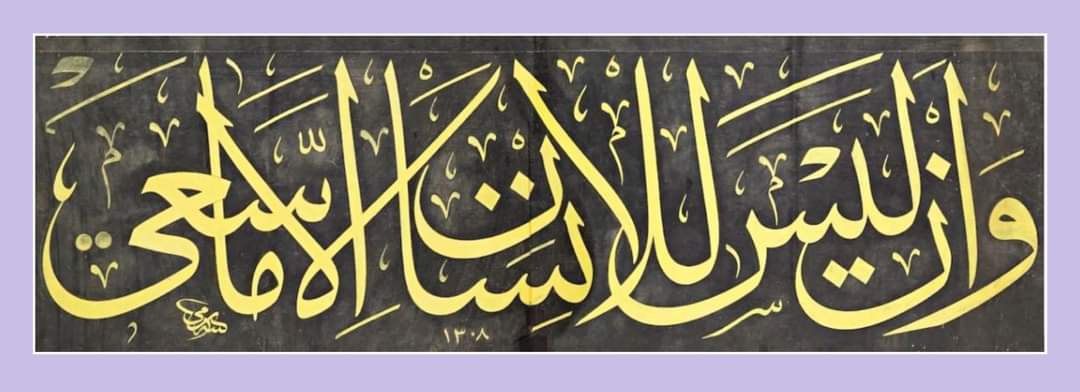 وَاَنْ لَيْسَ لِلْاِنْسَانِ اِلَّا مَا سَعٰى
١٣٠٨